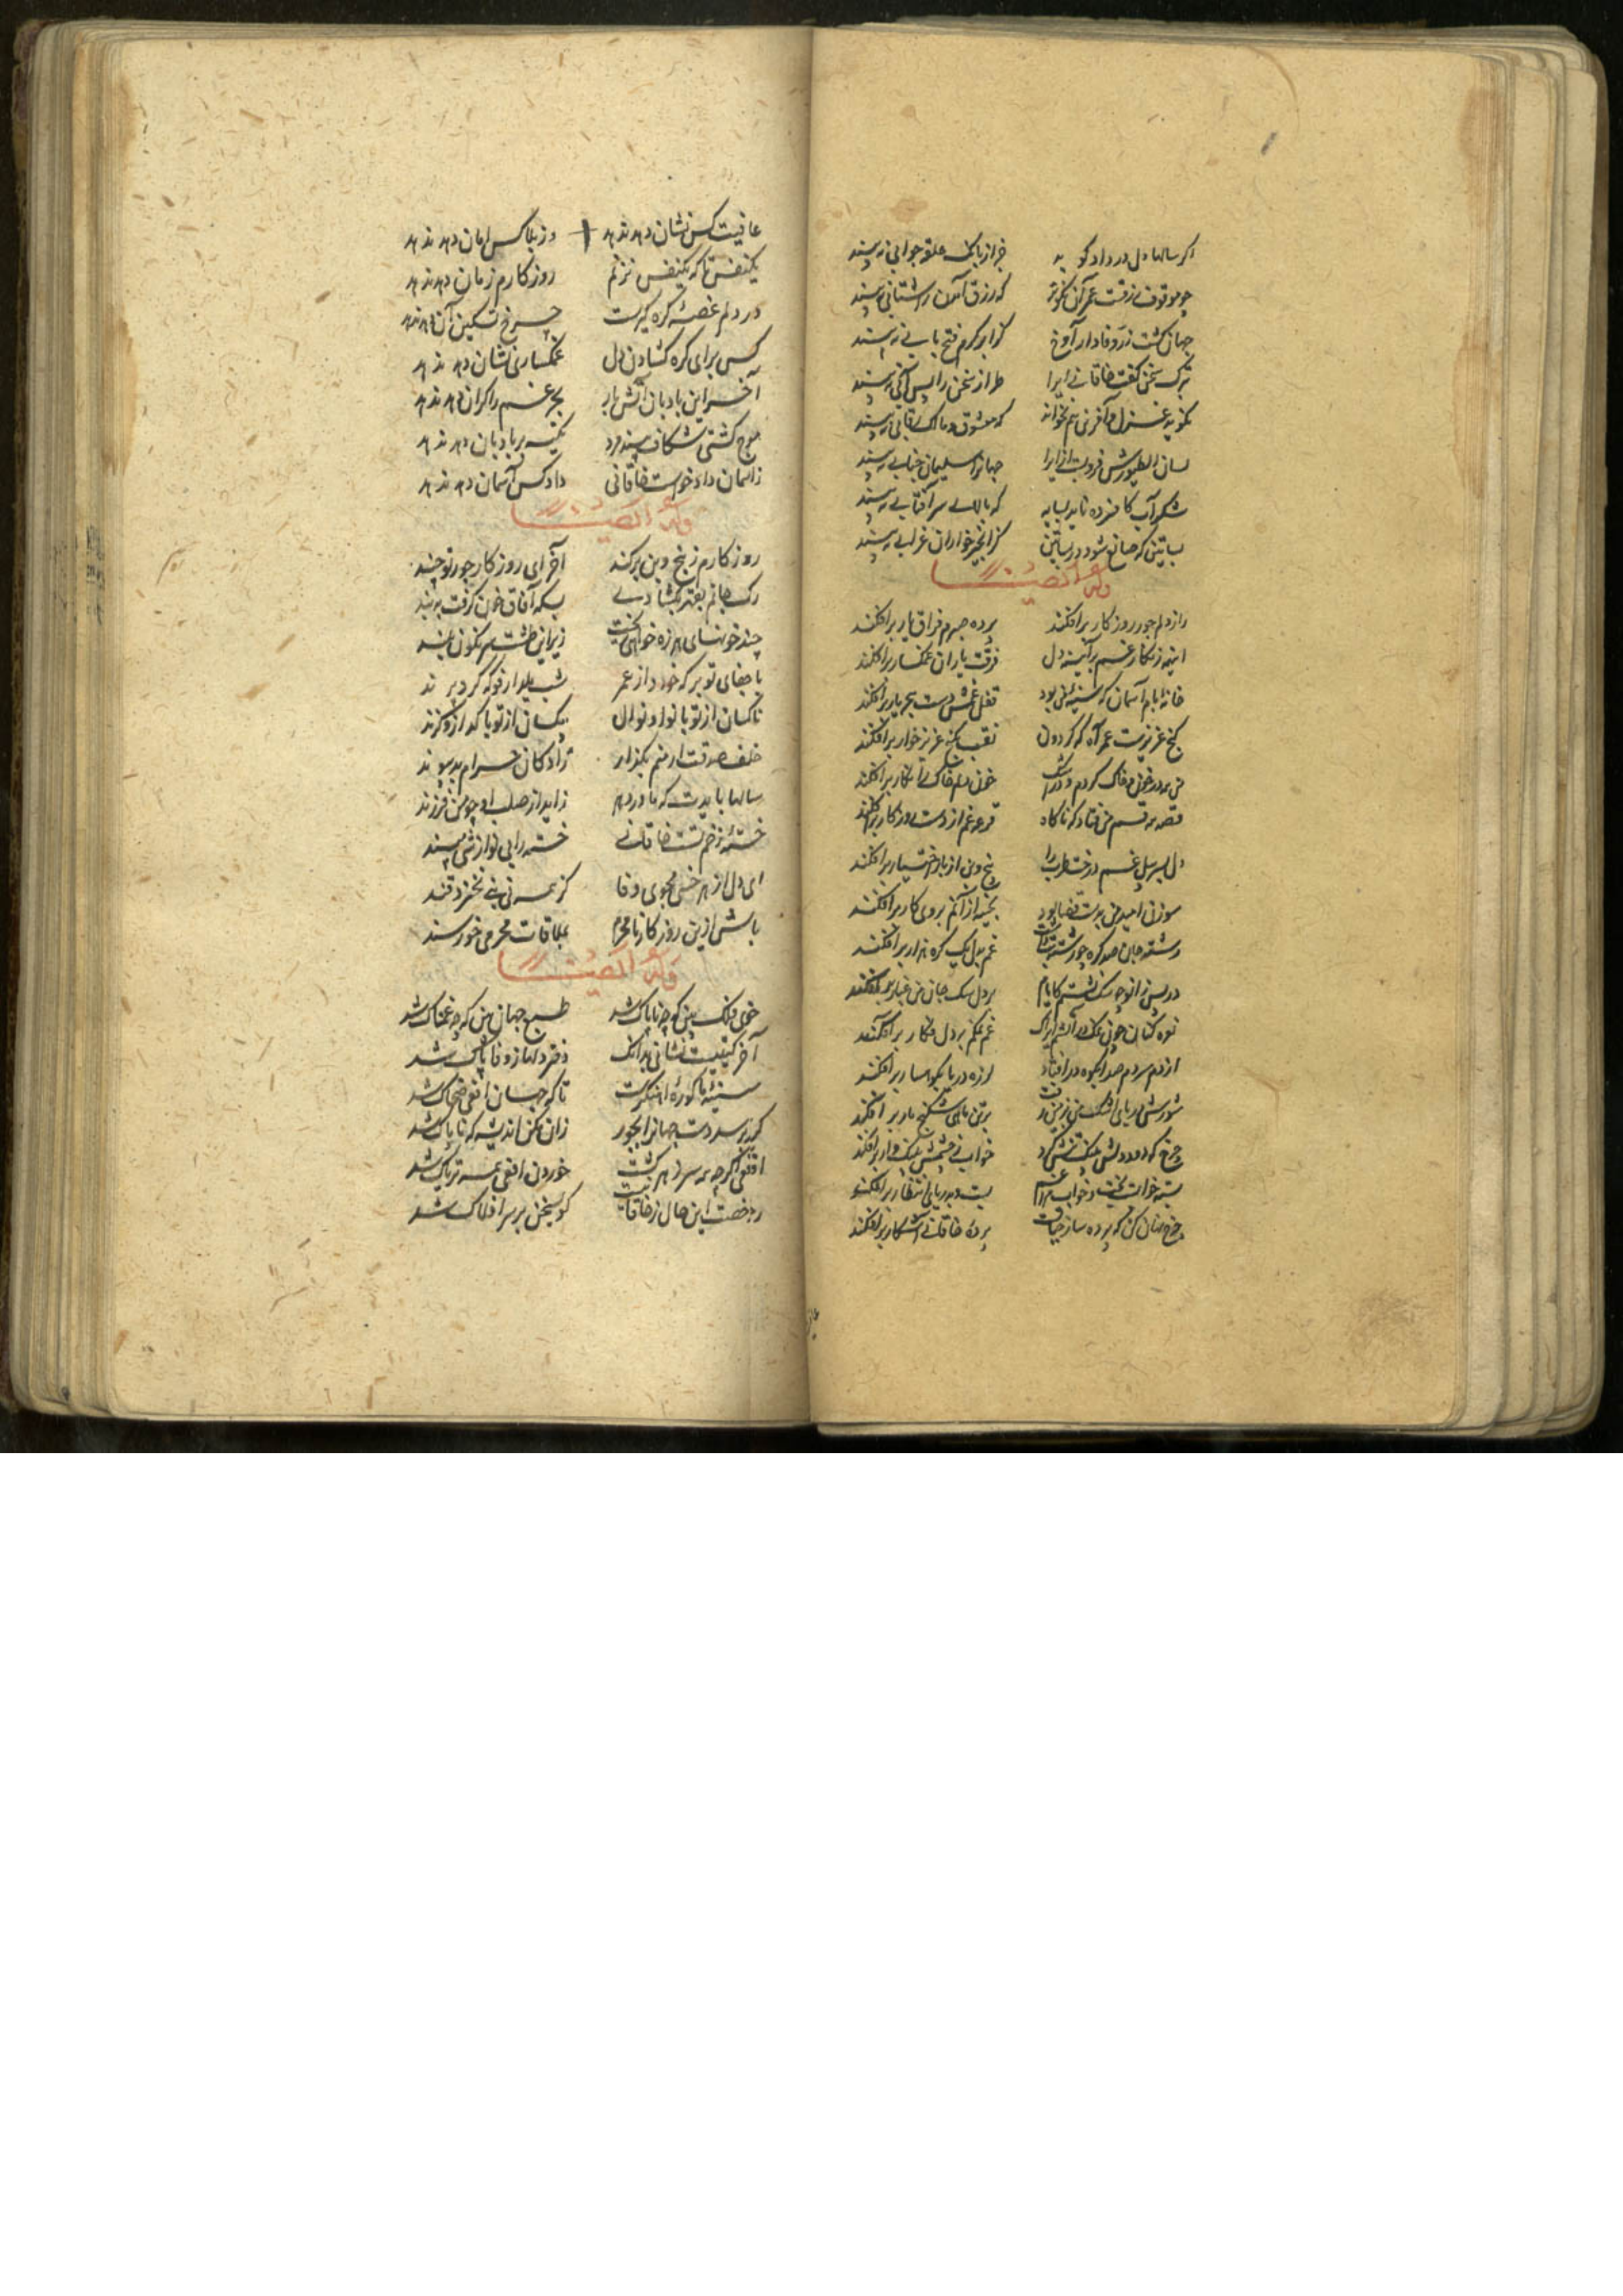 اکر سالها دل در داد کو به جز از بانک حلقه جوابی نه بیند
چو موقوف رزقت عمر آن نکوتر که رزق آسمان را شتابی نه بیند
جهان کشت زرد وفا دارد آوخ کز ابر کرم فتح بابی نه بیند
بترک سخن کفت خاقانی ایرا طراز سخن را بس آبی نه بیند
نکوید غزل وآفرین هم نخواند که معشوق و مالک رقابی نه بیند
لسان الطیورش فروبست ازایرا جهانرا سلیمان جنابی نه بیند
شکرآب کافسرده ناید بسایه که بالای سر آفتابی نه بیند
بساتین که ضایع شود در بساتین کز انجیرخواران غرابی نه بیند
وله ایضا
راز دلم جور روزکار برافکند پرده صبرم فراق یار برافکند
اینهمه زنکار غم بر آینه دل فرقت یاران غمکسار برافکند
خانه ایام آسمان که سینه من بود قفل غمش دست هجر یار برافکند
کنج عزیزست عمر آه که کردون نقب بکنج عزیز خوار برافکند
من بدر خون و خاک کردم و در خون دلم خاک را نکار برافکند
قصه بد قسم من فتاد که ناکاه قرعه غم از دست روزکار برافکند
دل بسر بیل غم درخت طرب را بیخ و بن از باغ اختیار برافکند
سوزن امید من بدست قضا بود بخیه از آنم بروی کار برافکند
رشته جان صد کره چو رشته تب داشت غم بدل یک کره هزار برافکند
در پس زانو چو سک نشستم کایام بر دل سک جان من غبار برافکند
نوحه کنان چون نمک در آتشم ایراک غم نمکم بر دل فکار برافکند
از دم سردم صدا بکوه درافتاد لرزه دریا بکوهسار برافکند
شورش دریای اشک من بزمین رفت بر تن ماهی شکنج مار برافکند
چرخ کبود درنش پلنک نقش کرد خواب ز چشمش پلنک وار برافکند
بسته خوابست بخت و خواب مرا هم بست و بدریای انتظار برافکند
چرخ نهان کن که پرده ساز حیاتست پرده خاقانی آشکار برافکند
عافیت کس نشان دهد ندهد وز بلا کس امان دهد ندهد
یکنفس تا که یکنفس بزنم روزکارم زمان دهد ندهد
در دلم غصه کره کیرست چرخ تسکین آن دهد ندهد
کس برای کره کشادن دل غمکساری نشان دهد ندهد
آخر این بادبان آتش بار بحر غم را کران دهد ندهد
موج کشتی شکاف بیند مرد تکیه بر بادبان دهد ندهد
زآسمان داد خواست خاقانی داد کس آسمان دهد ندهد
وله ایضا
روزکارم ز بیخ و بن برکند آخر ای روزکار جور تو چند
رک جانم بقهر بکشادی بسکه آفاق خون کرفت ببند
چند خونهای هرزه خواهی ریخت زیر این طشت سرنکون بلند
با جفای تو بر که خورد از عمر شب یلدا رفوکه کرد پرند
ناکسان از تو با نوا و نوال بکسان از تو با کداز و کزند
خلف صدقت ار منم بکذار زاد کان حرام بدپیوند
سالها بایدت که تا در دهر زاید از صلب او چو من فرزند
خسته زخم تست خاقانی خسته را بی نوازشی مپسند
ای دل از هر خسی مجوی وفا کز همه نی بنی نخیزد قند
باش از این روزکار نامحرم بملاقات محرمی خرسند
وله ایضا
خوی فلک بین که چه ناپاک شد طبع جهان بین که چه غمناک شد
آخر کیتیست نشانی بدانک دفتر دلها ز وفا پاک شد
سینه ما کوره آهنکرست تا که جهان افعی ضحاک شد
کر برسد دست جهانرا بخور زان مکن اندیشه که ناپاک شد
افعی اکرچه همه سر زهر کشت خوردن افعی همه تریاک شد
رخصت این حال ز خاقانیست کو بسخن بر سر افلاک شد